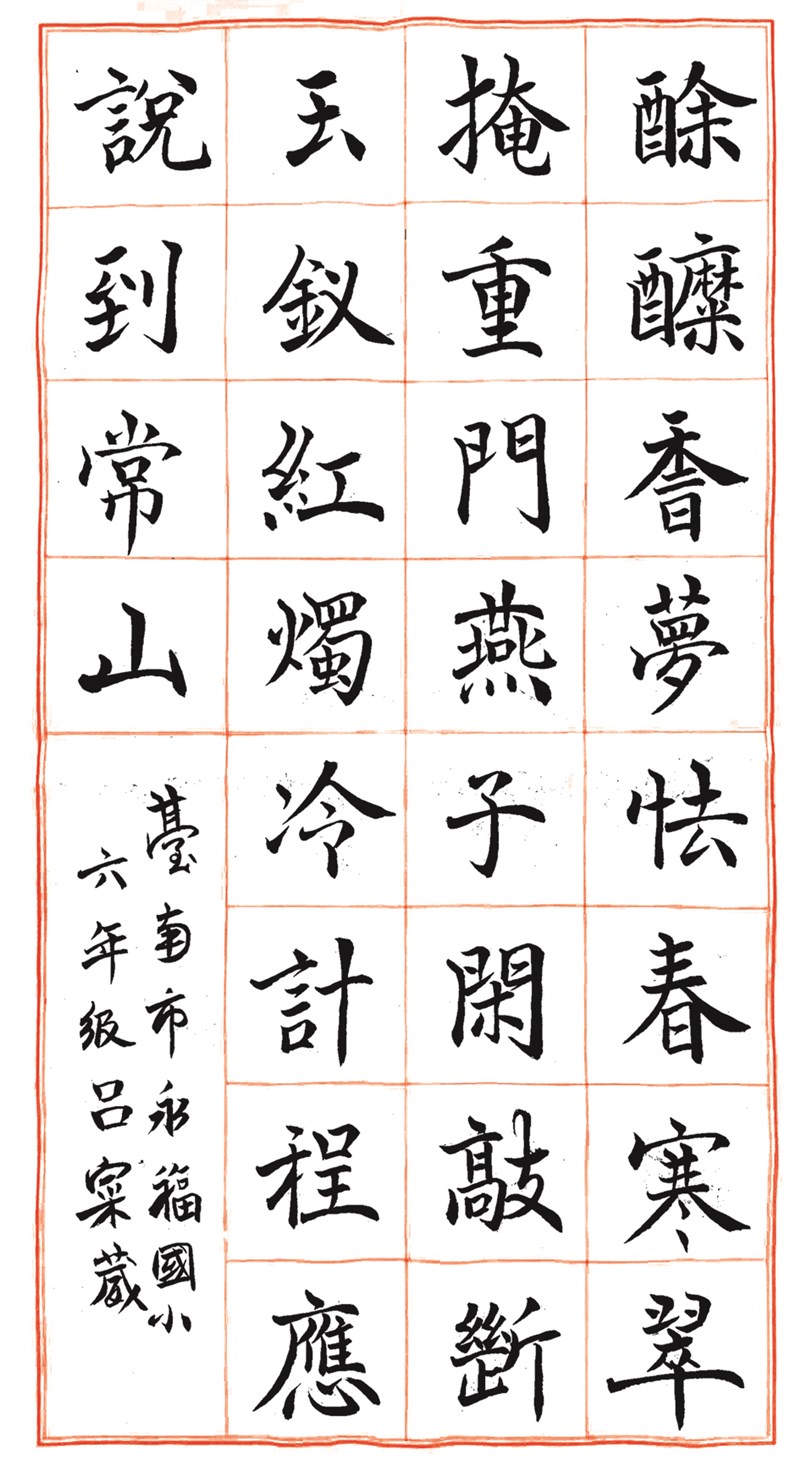 酴醾香夢怯春寒翠
掩重門燕子閑敲斷
玉釵紅燭冷計程應
說到常山
臺南市永福國小
六年級呂寀葳